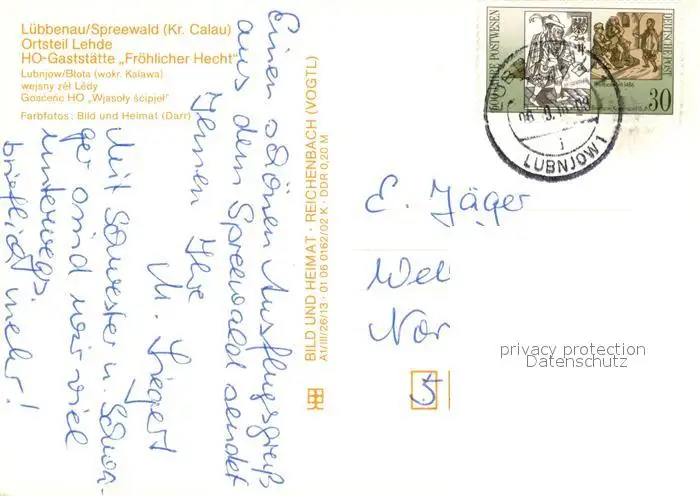 Lübbenau/Spreewald (Kr. Calau)
Ortsteil Lehde
HO-Gaststätte „Fröhlicher Hecht"
Lubnjow/Błota (wokr. Kalawa)
wejsny źěł Lědy
Gosćeńc HO „Wjasoły šćipjeł"
Farbfotos: Bild und Heimat (Darr)
Einen schönen Ausflugsgruß
aus dem Spreewald sendet
Ihnen Ihre
M. Siegert
Mit Schwester u. Schwa-
ger sind wir viel
unterwegs.
brieflich mehr!
BILD UND HEIMAT · REICHENBACH (VOGTL)
A1/III/26/13 · 01 06 0162/02 K · DDR 0,20 M
500 JAHRE POSTWESEN
DEUTSCHE POST
30
LUBNJOW 1
j
E. Jäger
Wei
Nor
5
privacy protection
Datenschutz